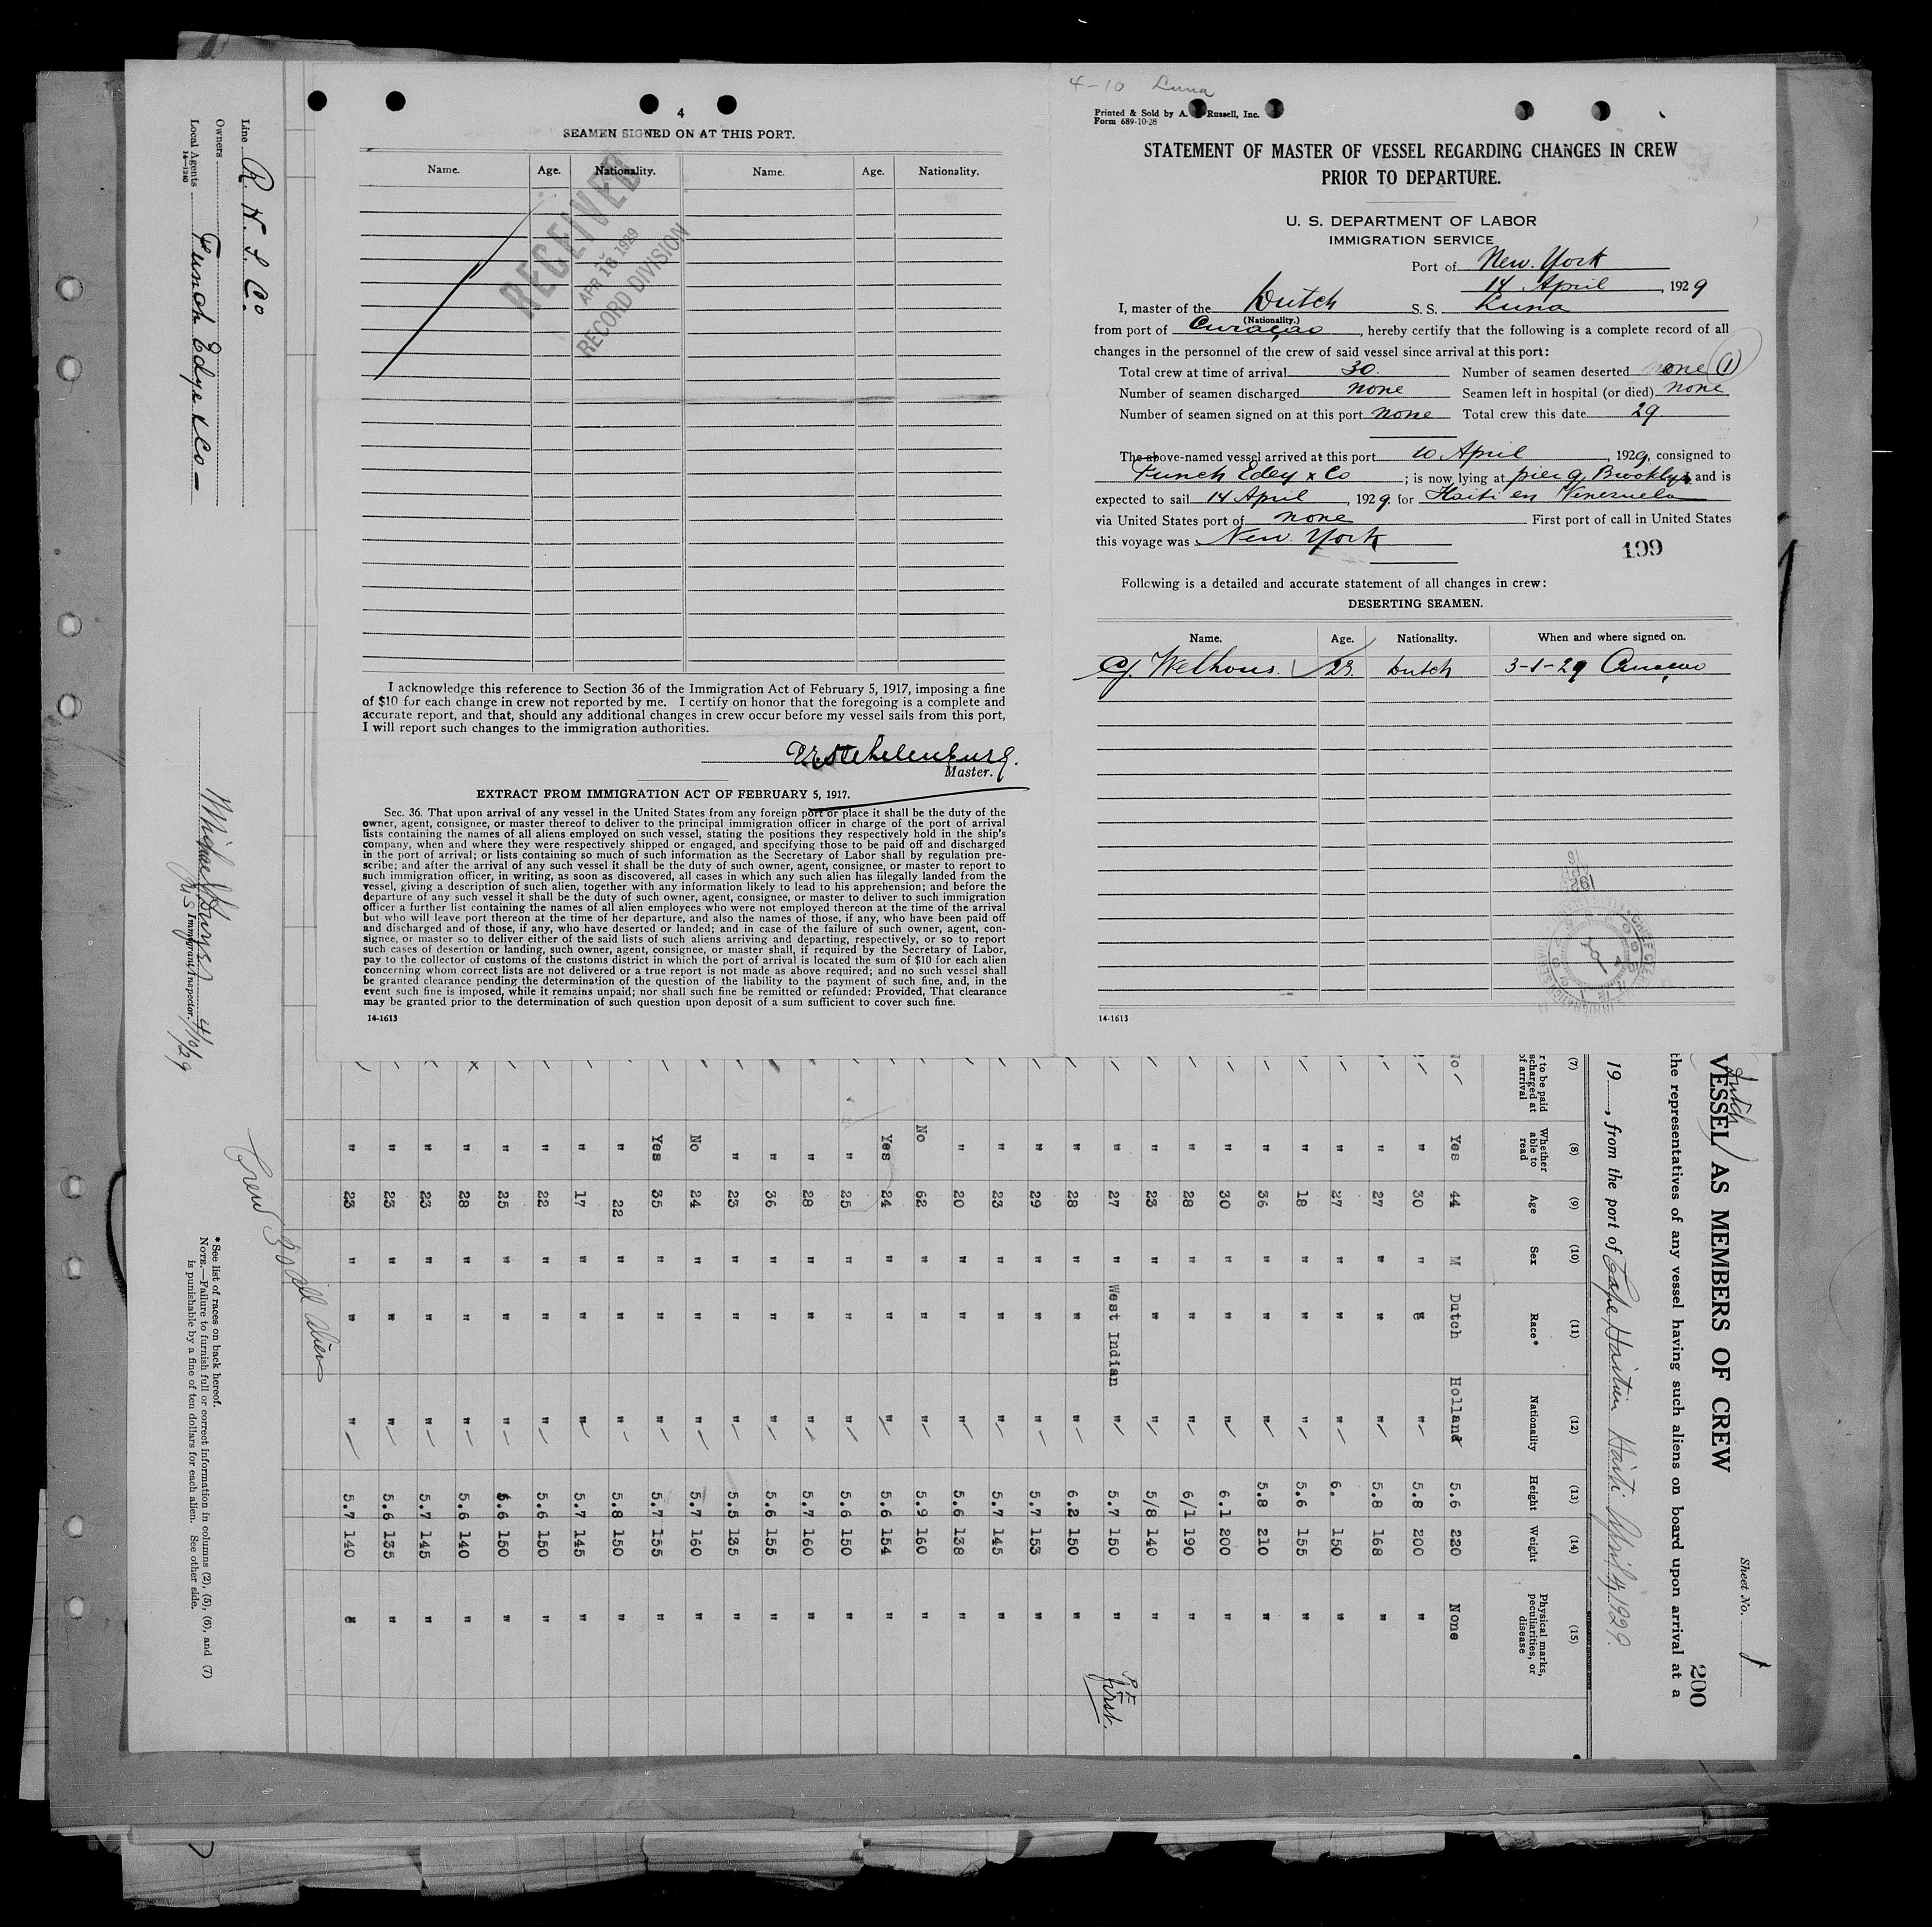 4
SEAMEN SIGNED ON AT THIS PORT.
Name. Age. Nationality. Name. Age. Nationality.
RECEIVED
APR 16 1929
RECORD DIVISION
I acknowledge this reference to Section 36 of the Immigration Act of February 5, 1917, imposing a fine
of $10 for each change in crew not reported by me. I certify on honor that the foregoing is a complete and
accurate report, and that, should any additional changes in crew occur before my vessel sails from this port,
I will report such changes to the immigration authorities.
Master.
EXTRACT FROM IMMIGRATION ACT OF FEBRUARY 5, 1917.
Sec. 36. That upon arrival of any vessel in the United States from any foreign port or place it shall be the duty of the
owner, agent, consignee, or master thereof to deliver to the principal immigration officer in charge of the port of arrival
lists containing the names of all aliens employed on such vessel, stating the positions they respectively hold in the ship's
company, when and where they were respectively shipped or engaged, and specifying those to be paid off and discharged
in the port of arrival; or lists containing so much of such information as the Secretary of Labor shall by regulation pre-
scribe; and after the arrival of any such vessel it shall be the duty of such owner, agent, consignee, or master to report to
such immigration officer, in writing, as soon as discovered, all cases in which any such alien has illegally landed from the
vessel, giving a description of such alien, together with any information likely to lead to his apprehension; and before the
departure of any such vessel it shall be the duty of such owner, agent, consignee, or master to deliver to such immigration
officer a further list containing the names of all alien employees who were not employed thereon at the time of the arrival
but who will leave port thereon at the time of her departure, and also the names of those, if any, who have been paid off
and discharged and of those, if any, who have deserted or landed; and in case of the failure of such owner, agent, con-
signee, or master so to deliver either of the said lists of such aliens arriving and departing, respectively, or so to report
such cases of desertion or landing, such owner, agent, consignee, or master shall, if required by the Secretary of Labor,
pay to the collector of customs of the customs district in which the port of arrival is located the sum of $10 for each alien
concerning whom correct lists are not delivered or a true report is not made as above required; and no such vessel shall
be granted clearance pending the determination of the question of the liability to the payment of such fine, and, in the
event such fine is imposed, while it remains unpaid; nor shall such fine be remitted or refunded: Provided, That clearance
may be granted prior to the determination of such question upon deposit of a sum sufficient to cover such fine.
14-1613
4-10 Luna
Printed & Sold by A. Russell, Inc.
Form 689-10-28
STATEMENT OF MASTER OF VESSEL REGARDING CHANGES IN CREW
PRIOR TO DEPARTURE.
U. S. DEPARTMENT OF LABOR
IMMIGRATION SERVICE
Port of New York
14 April, 1929
I, master of the Dutch S. S. Luna
(Nationality.)
from port of Curaçao, hereby certify that the following is a complete record of all
changes in the personnel of the crew of said vessel since arrival at this port:
Total crew at time of arrival 30 Number of seamen deserted one (1)
Number of seamen discharged none Seamen left in hospital (or died) none
Number of seamen signed on at this port none Total crew this date 29
The above-named vessel arrived at this port 10 April, 1929, consigned to
Funch Edey & Co; is now lying at pier 9 Brooklyn and is
expected to sail 14 April, 1929 for Haiti en Venezuela
via United States port of none First port of call in United States
this voyage was New York
199
Following is a detailed and accurate statement of all changes in crew:
DESERTING SEAMEN.
Name. Age. Nationality. When and where signed on.
Welhous. 23. Dutch 3-1-29 Curacao
14-1613
Line R. N. S. Co.
Owners
Local Agents Funch Edye & Co
14-1240
Immigrant Inspector.
4/10/29
Crew 30 all alien
* See list of races on back hereof.
NOTE.—Failure to furnish full or correct information in columns (2), (5), (6), and (7)
is punishable by a fine of ten dollars for each alien. See other side.
Sheet No. 1
Dutch
VESSEL AS MEMBERS OF CREW
200
the representatives of any vessel having such aliens on board upon arrival at a
19, from the port of Cape Haitien Haiti April 4, 1929.
(7) (8) (9) (10) (11) (12) (13) (14) (15)
to be paid
scharged at
of arrival
Whether
able to
read
Age Sex Race* Nationality Height Weight
Physical marks,
peculiarities, or
disease
No Yes 44 M Dutch Holland 5.6 220 None
" 30 " " " 5.8 200 "
" 27 " " " 5.8 168 "
" 27 " " " 6. 150 "
" 18 " " " 5.6 155 "
" 36 " " " 5.8 210 "
" 30 " " " 6.1 200 "
" 28 " " " 6/1 190 "
" 23 " " " 5/8 140 "
" 27 " West Indian " 5.7 150 "
First.
" 28 " " " 6.2 150 "
" 29 " " " 5.7 153 "
" 23 " " " 5.7 145 "
" 20 " " " 5.6 138 "
No 62 " " " 5.9 160 "
Yes 24 " " " 5.6 154 "
" 25 " " " 5.6 150 "
" 28 " " " 5.7 160 "
" 36 " " " 5.6 155 "
" 23 " " " 5.5 135 "
No 24 " " " 5.7 160 "
Yes 35 " " " 5.7 155 "
" 22 " " " 5.8 150 "
" 17 " " " 5.7 145 "
" 22 " " " 5.6 150 "
" 25 " " " 5.6 150 "
" 28 " " " 5.6 140 "
" 23 " " " 5.7 145 "
" 23 " " " 5.6 135 "
" 23 " " " 5.7 140 "